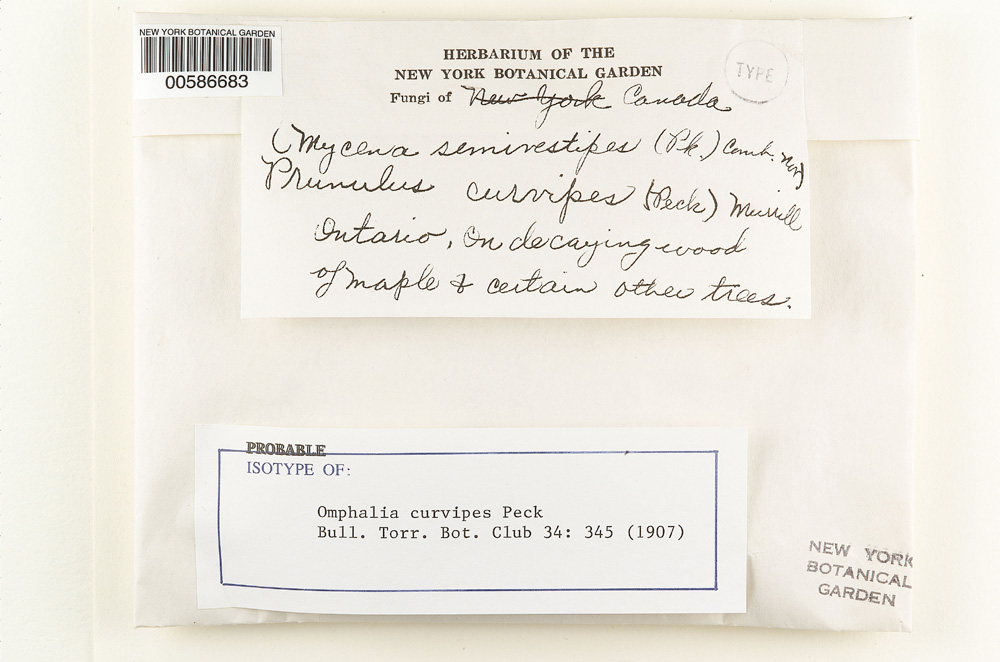 NEW YORK BOTANICAL GARDEN
00586683
HERBARIUM OF THE
NEW YORK BOTANICAL GARDEN
TYPE
Fungi of New York Canada
(Mycena semivestipes (Pk.) Comb. nov)
Prunulus curvipes (Peck) Murrill
Ontario, On decaying wood
of maple & certain other trees.
PROBABLE
ISOTYPE OF:
Omphalia curvipes Peck
Bull. Torr. Bot. Club 34: 345 (1907)
NEW YORK
BOTANICAL
GARDEN